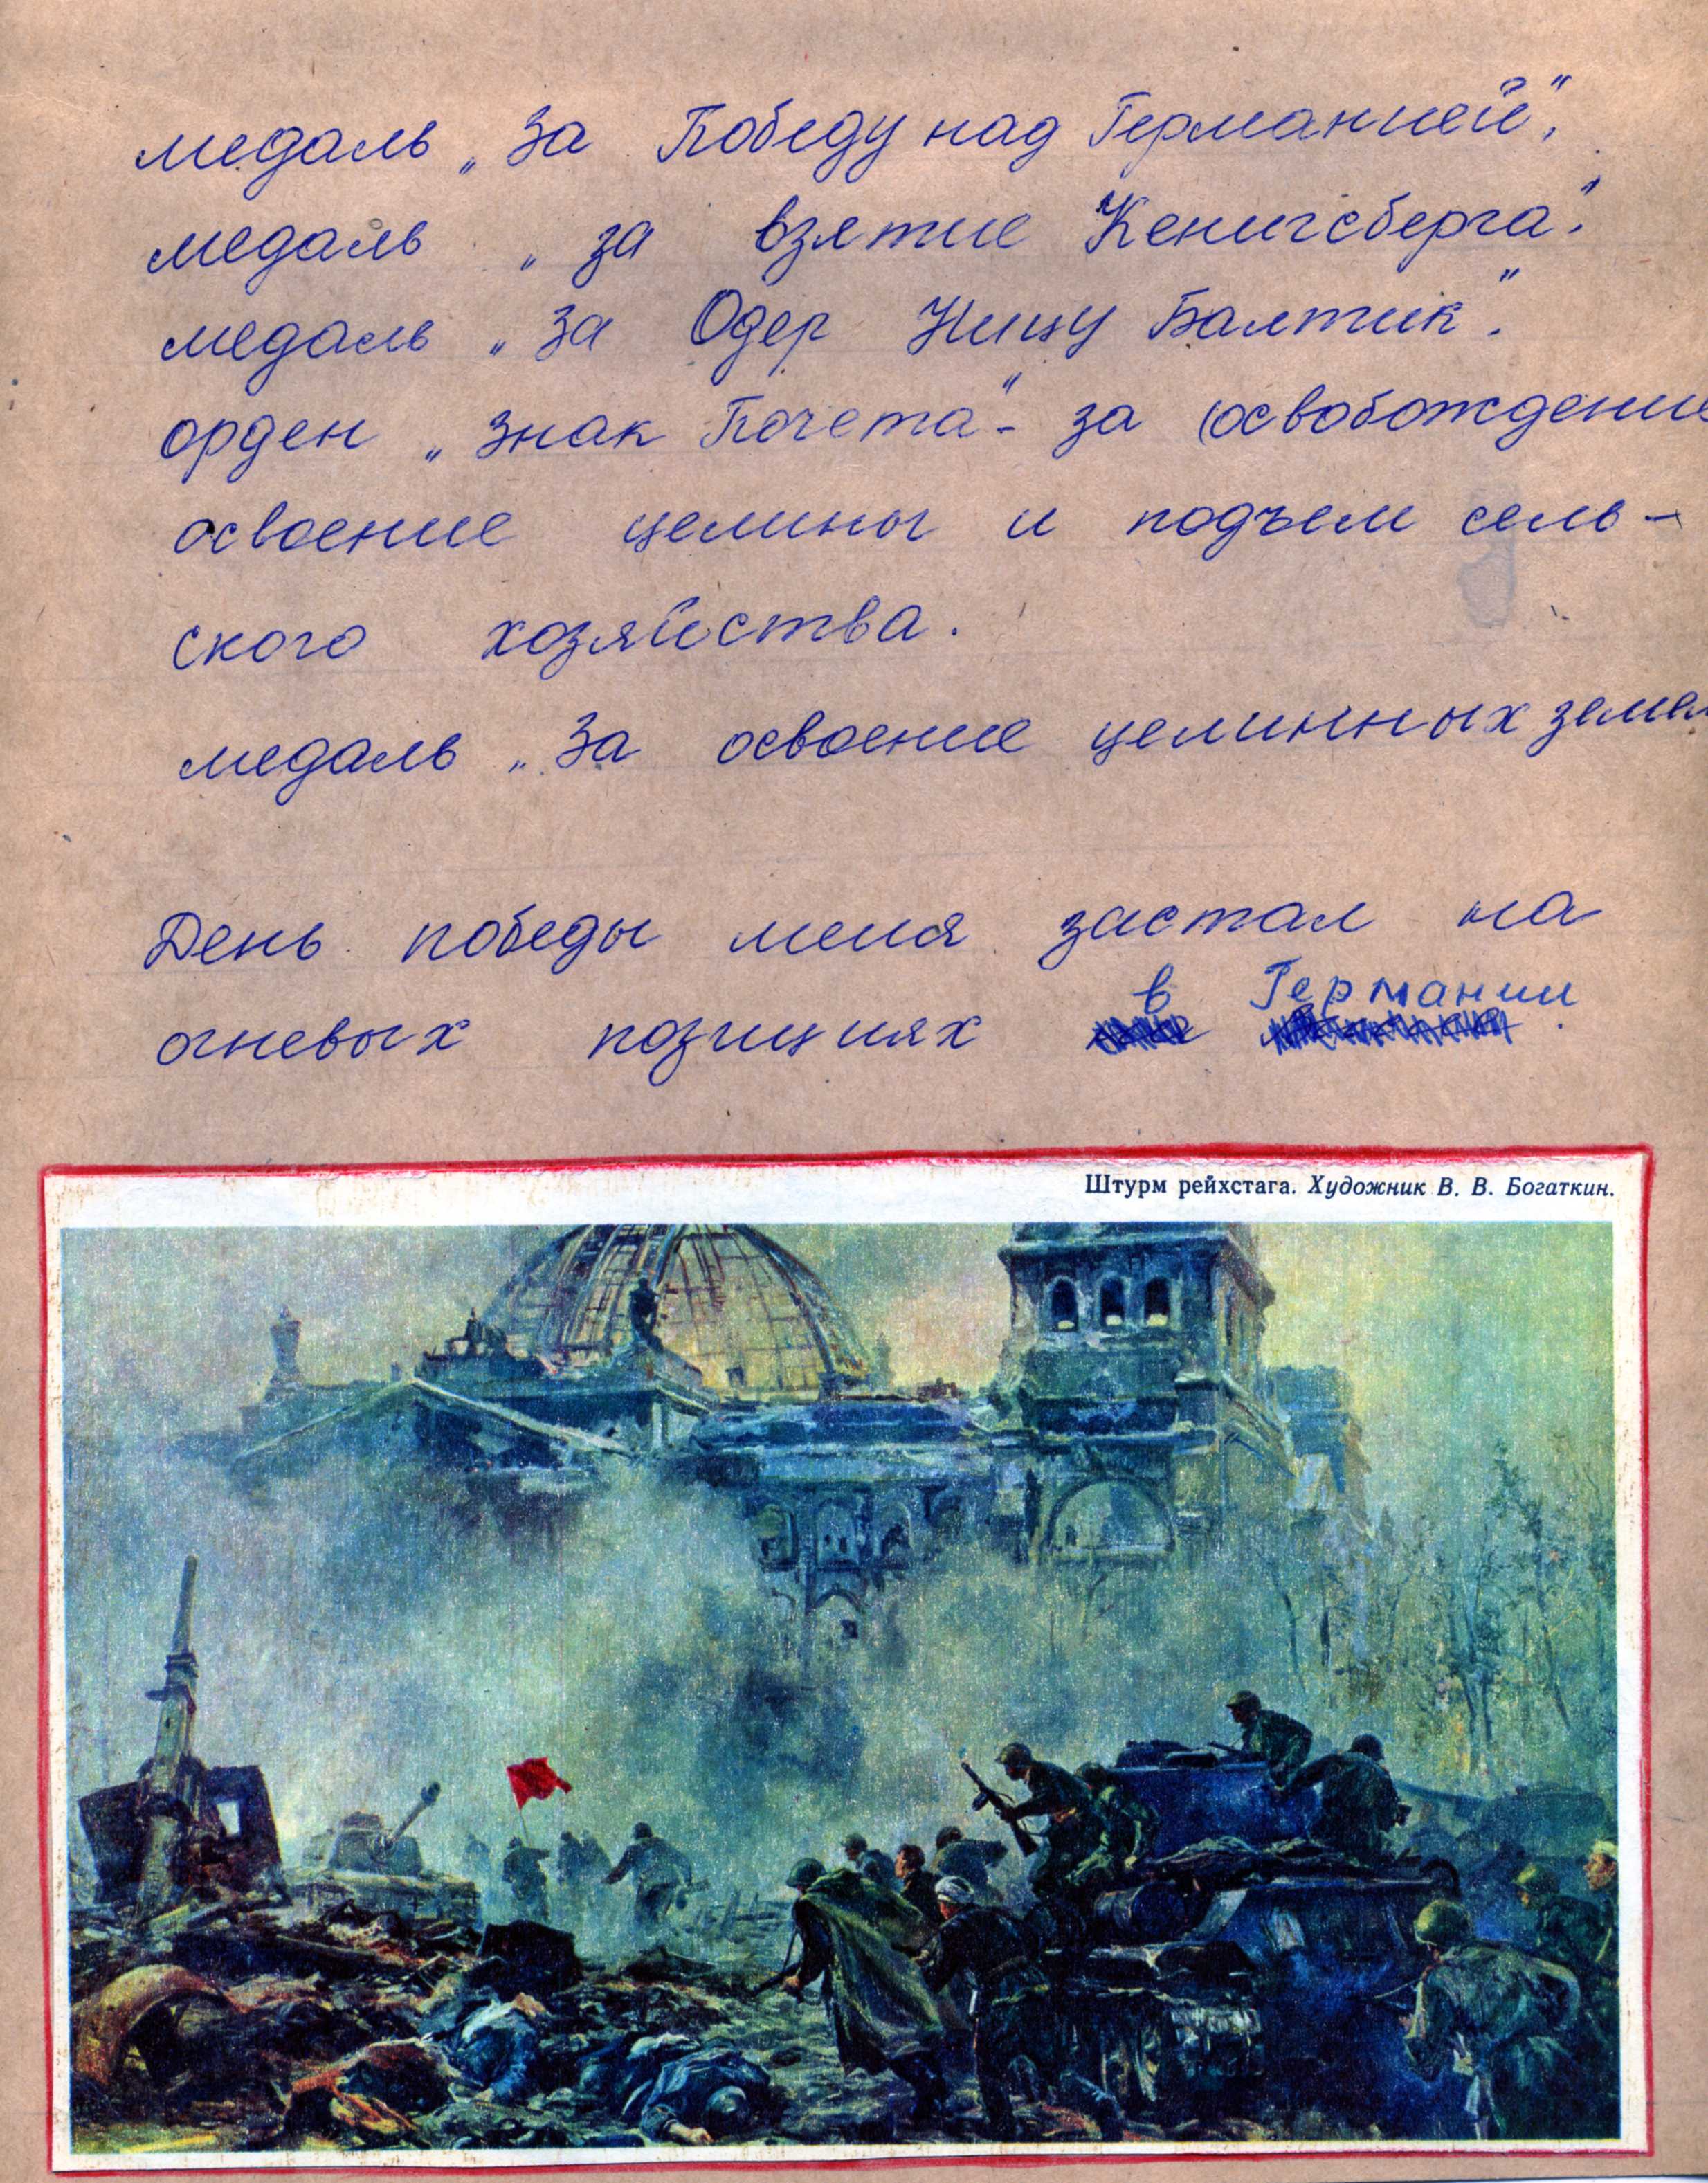 медаль „За Победу над Германией",
медаль „за взятие Кенигсберга".
медаль „За Одер Ницу Балтик".
орден „Знак Почета" - за (освобождение
освоение целины и подъем сель-
ского хозяйства.
медаль „За освоение целинных земел
День победы меня застал на
в Германии
огневых позициях
Штурм рейхстага. Художник В. В. Богаткин.